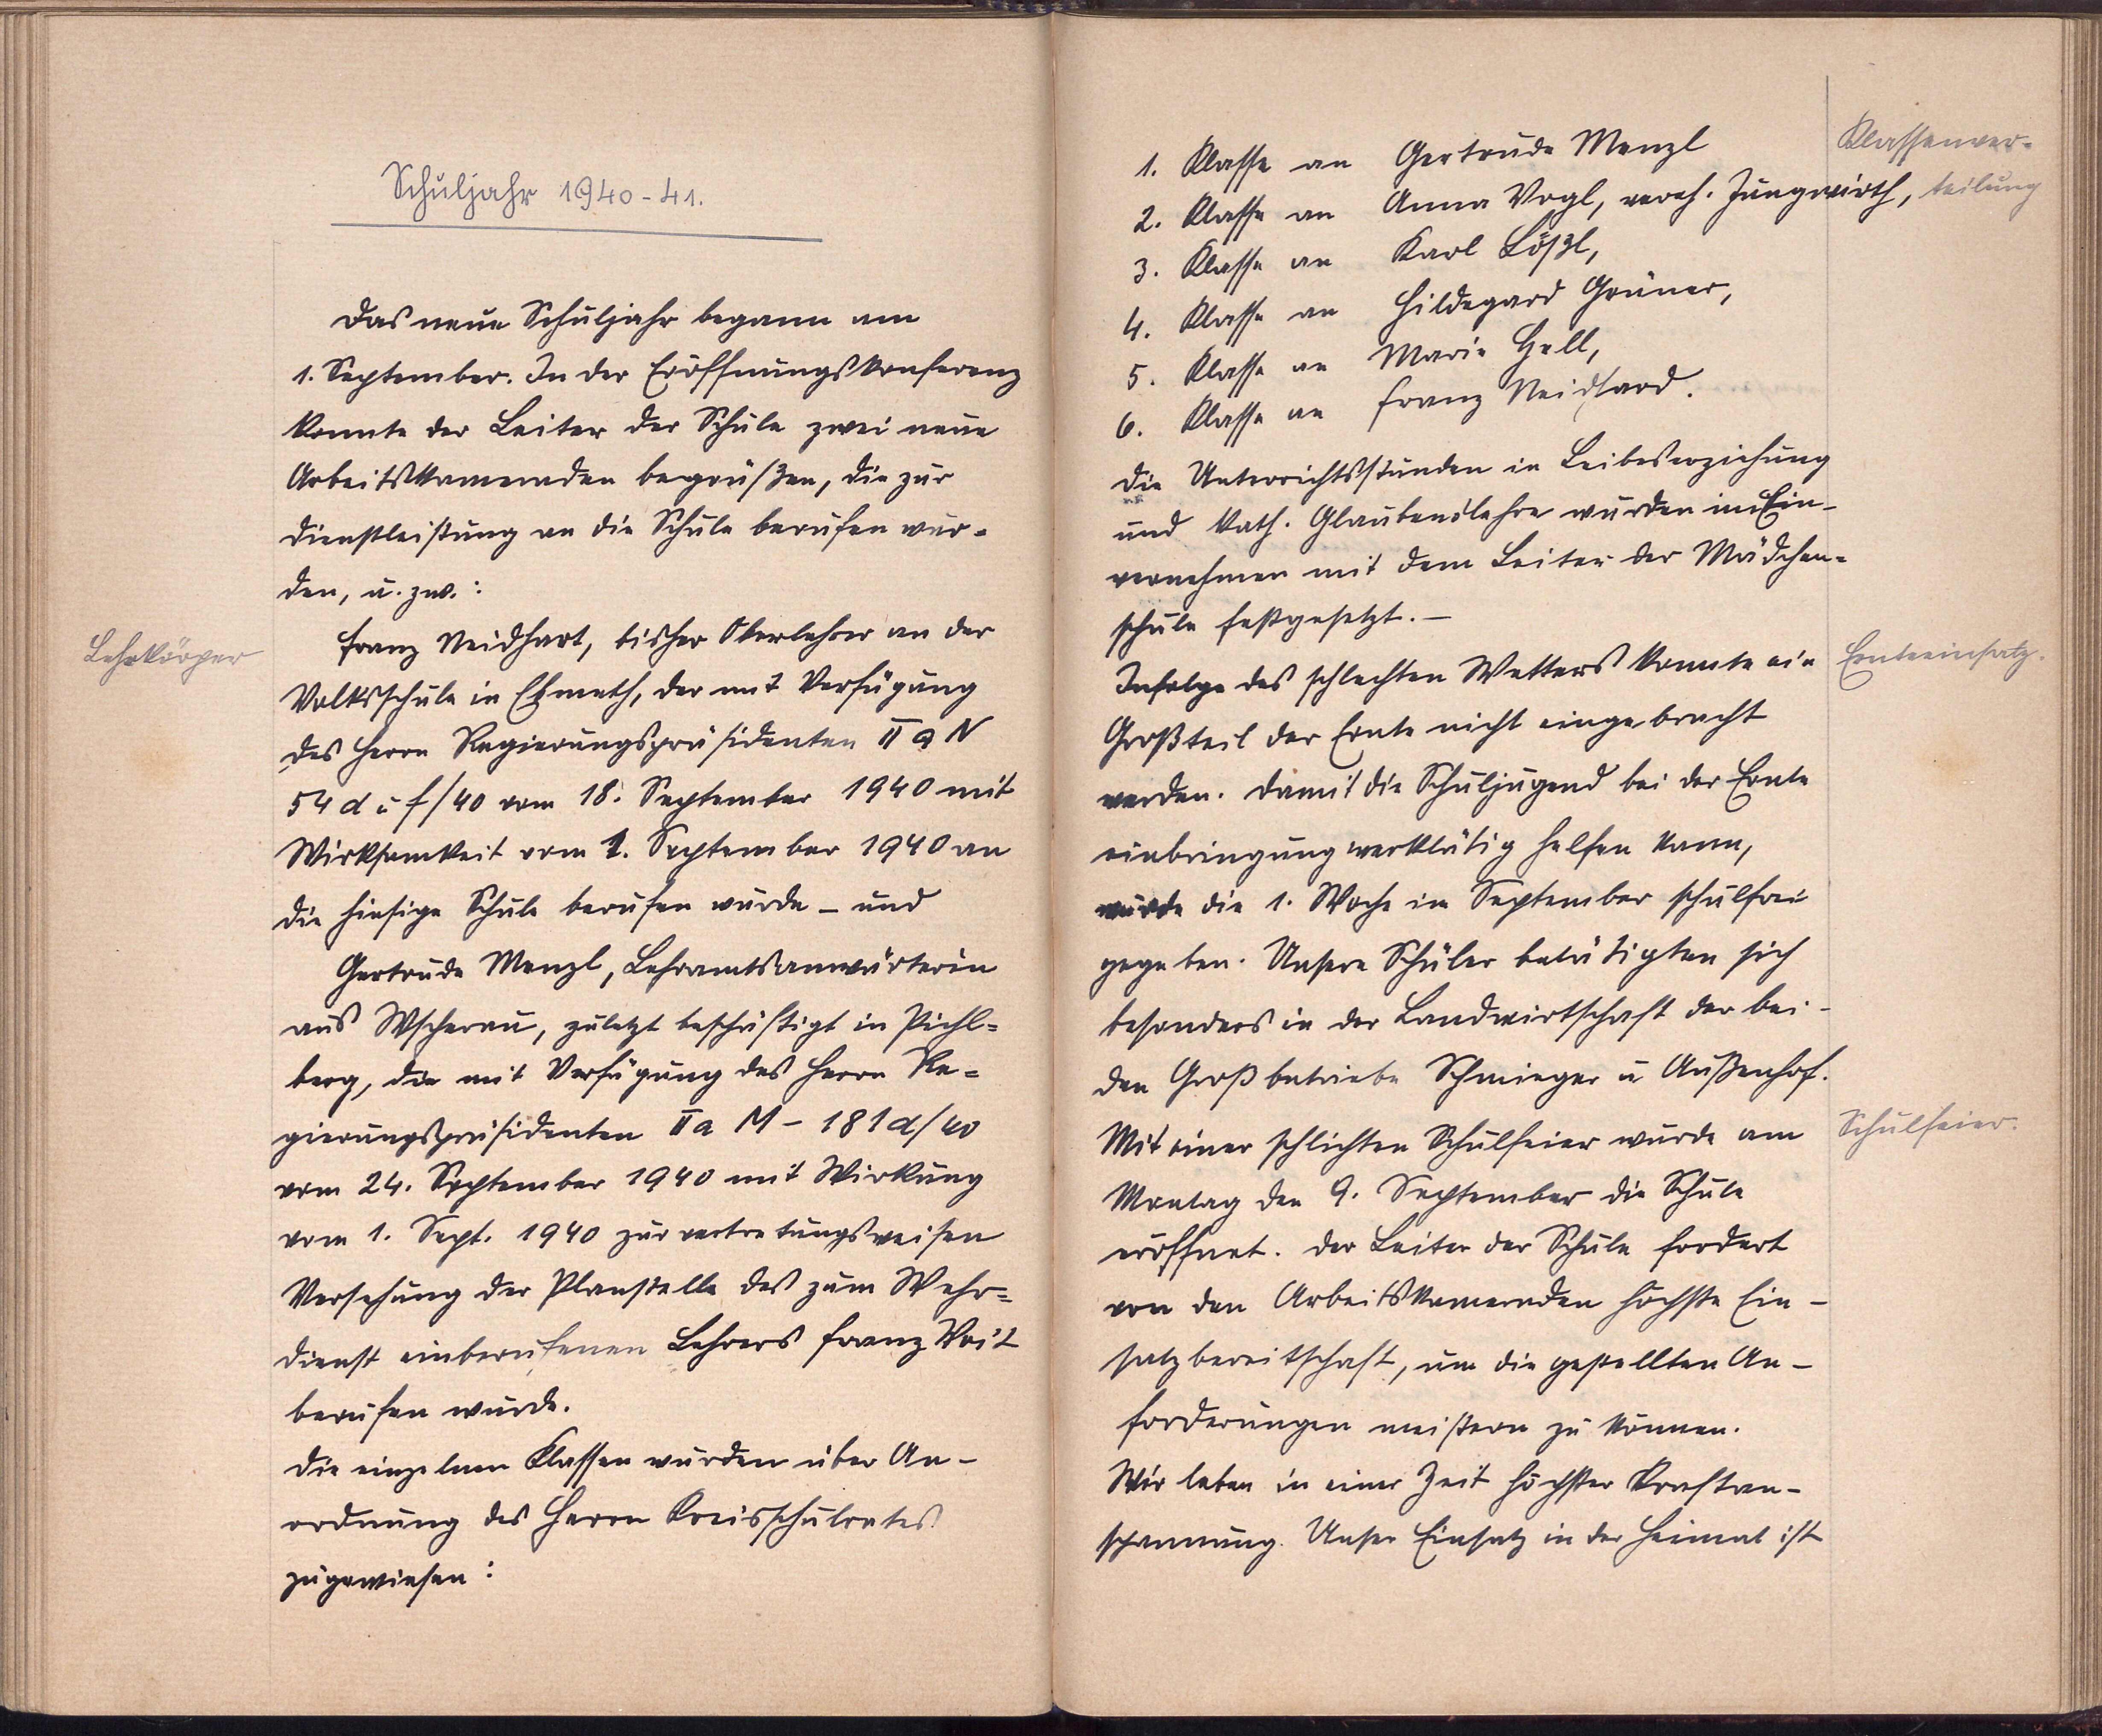 Schuljahr 1940-41.
Das neue Schuljahr begann am
1. September. In der Eröffnungskonferenz
konnte der Leiter der Schule zwei neue
Arbeitskameraden begrüßen, die zur
Dienstleistung an die Schule berufen wur-
den, u. zw.:
Lehrkörper
Franz Neidhart, bisher Oberlehrer an der
Volksschule in Elhneth, der mit Verfügung
des Herrn Regierungspräsidenten II a N
54 d u f/40 vom 18. September 1940 mit
Wirksamkeit vom 1. September 1940 an
die hiesige Schule berufen wurde – und
Gertrude Menzl, Lehramtsanwärterin
aus Wscherau, zuletzt beschäftigt in Pichl-
berg, die mit Verfügung des Herrn Re-
gierungspräsidenten II a M – 181 d/40
vom 24. September 1940 mit Wirkung
vom 1. Sept. 1940 zur vertretungsweisen
Versehung der Planstelle des zum Wehr-
dienst einberufenen Lehrers Franz Voit
berufen wurde.
Die einzelnen Klassen wurden über An-
ordnung des Herrn Kreisschulrates
zugewiesen:
Klassenver-
teilung
1. Klasse an Gertrude Menzl
2. Klasse an Anna Vogl, vereh. Jungwirth,
3. Klasse an Karl Lößl,
4. Klasse an Hildegard Grüner,
5. Klasse an Marie Hell,
6. Klasse an Franz Neidhard.
Die Unterrichtsstunden in Leibeserziehung
und kath. Glaubenslehre wurden im Ein-
vernehmen mit dem Leiter der Mädchen-
schule festgesetzt. –
Ernteeinsatz.
Infolge des schlechten Wetters konnte ein
Großteil der Ernte nicht eingebracht
werden. Damit die Schuljugend bei der Ernte
einbringung werktätig helfen kann,
wurde die 1. Woche im September schulfrei
gegeben. Unsere Schüler betätigten sich
besonders in der Landwirtschaft der bei-
den Großbetriebe Schmieger u Außenhof.
Schulfeier.
Mit einer schlichten Schulfeier wurde am
Montag den 9. September die Schule
eröffnet. Der Leiter der Schule fordert
von den Arbeitskameraden höchste Ein-
satzbereitschaft, um die gestellten An-
forderungen meistern zu können.
Wir leben in einer Zeit höchster Kraftan-
spannung. Unser Einsatz in der Heimat ist